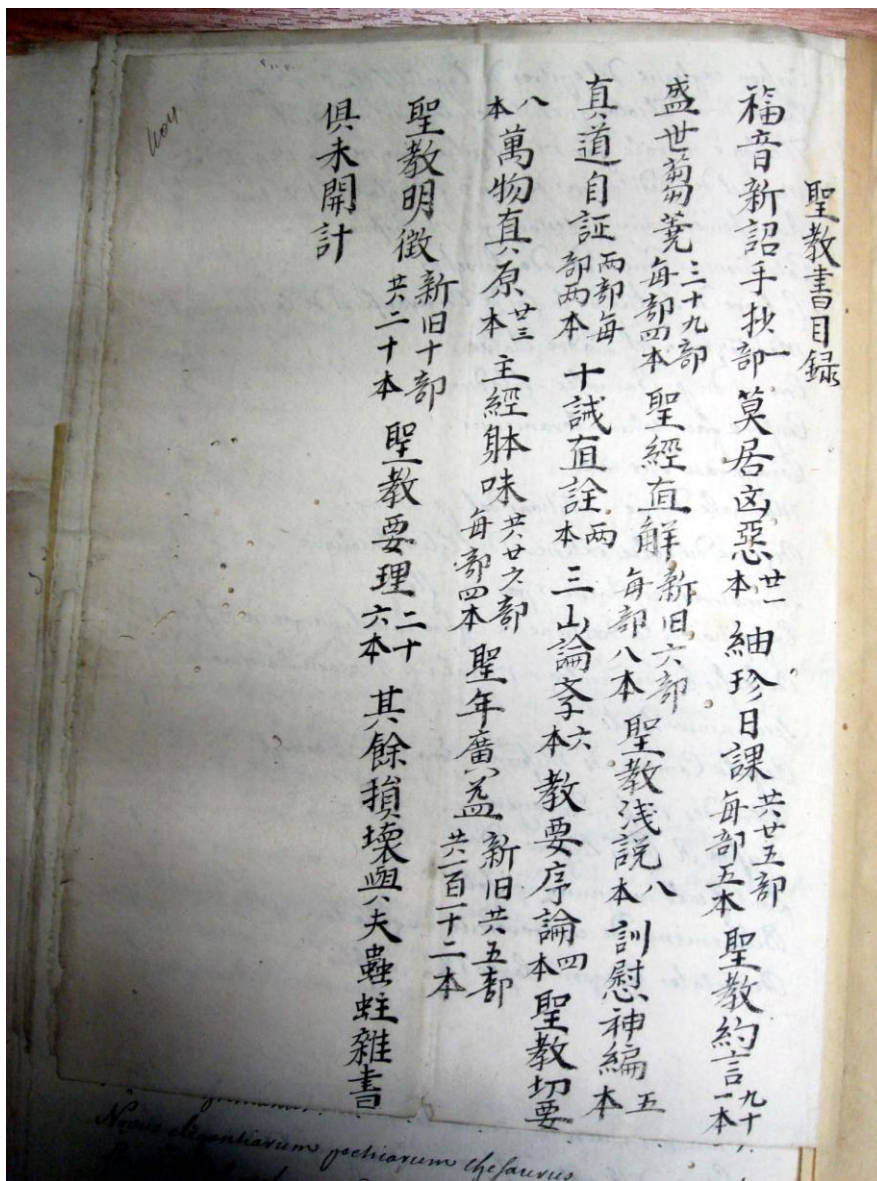 聖教書目録
福音新詔手抄一部 莫居凶惡廿一本 紬珍日課共廿五部每部五本 聖教約言九十一本
盛世蒭蕘三十九部每部四本 聖經直解新旧六部每部八本 聖教浅説八本 訓慰神編五本
真道自証兩部每部兩本 十誡直詮兩本 三山論孝六本 教要序論四本 聖教切要
八本 萬物真原廿三本 主經躰味共廿六部每部四本 聖年廣益新旧共五部共一百一十二本
聖教明徴新旧十部共二十本 聖教要理二十六本 其餘損壞與夫蟲蛀雜書
俱未開計
Novus elegantiarum poeticarum thesaurus